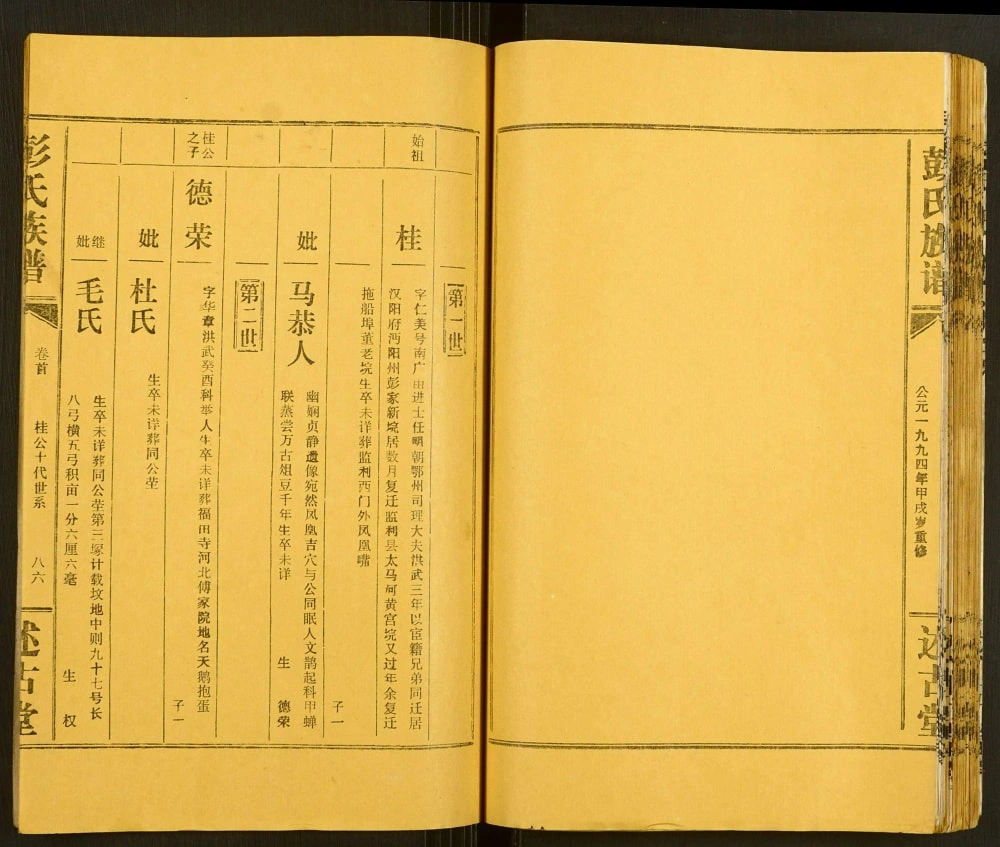 彭氏族谱
公元一九九四年甲戌岁重修
述古堂
第一世
始祖
桂
字仁美号南广由进士任明朝鄂州司理大夫洪武三年以宦籍兄弟同迁居
汉阳府沔阳州彭家新垸居数月复迁监利县太马河黄宫垸又过年余复迁
拖船埠董老垸生卒未详葬监利西门外凤凰嘴
子一
妣
马恭人
幽娴贞静遗像宛然凤凰吉穴与公同眠人文鹊起科甲蝉
联蒸尝万古俎豆千年生卒未详
生
德荣
第二世
桂公
之子
德荣
字华章洪武癸酉科举人生卒未详葬福田寺河北傅家院地名天鹅抱蛋
子一
妣
杜氏
生卒未详葬同公茔
继
妣
毛氏
生卒未详葬同公茔第三冢计载坟地中则九十七号长
八弓横五弓积亩一分六厘六毫
生
权
彭氏族谱
卷首
桂公十代世系
八六
述古堂